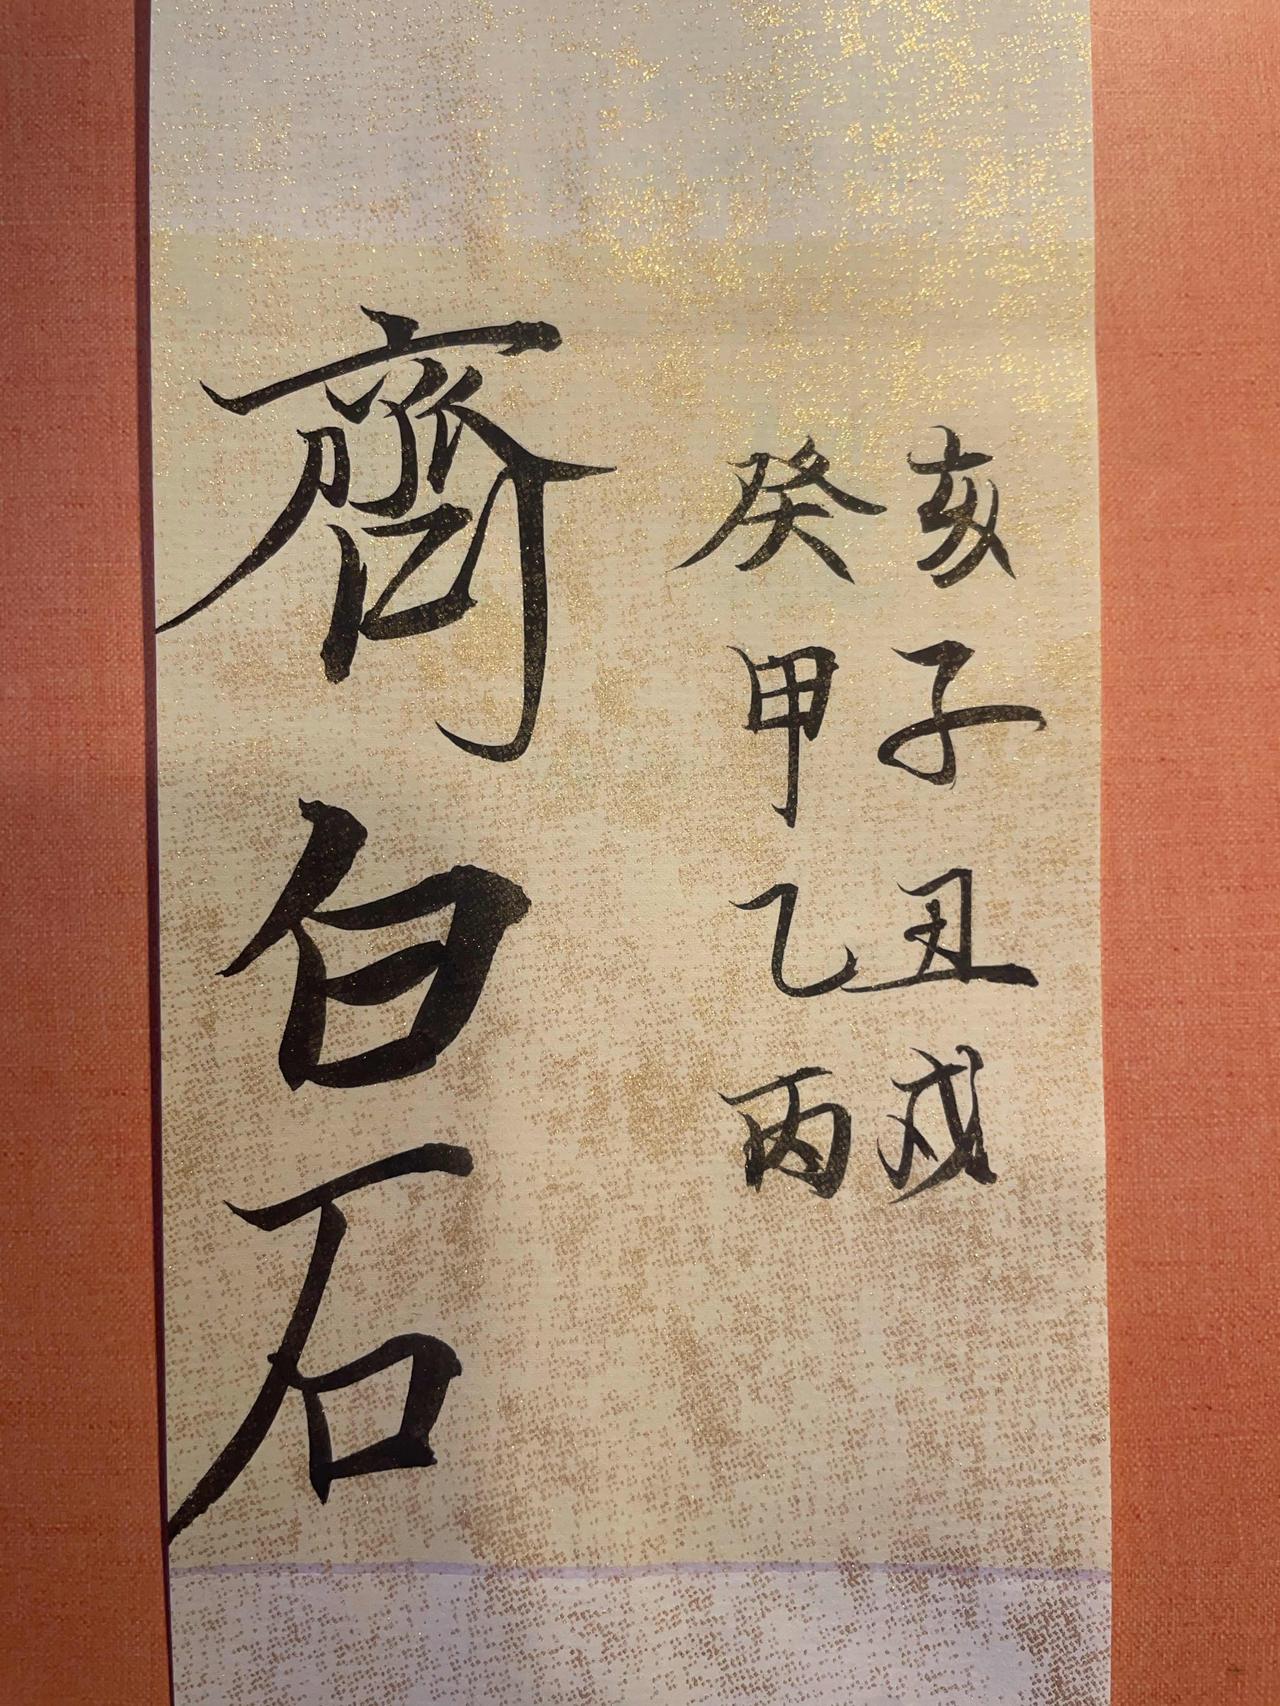 亥子丑戌
癸甲乙丙
齊白石